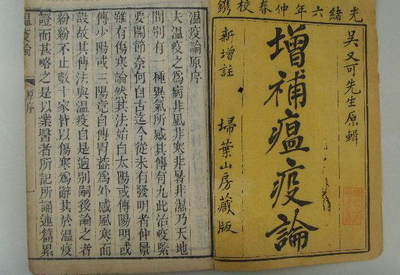 光緒六年仲春校鐫
吳又可先生原輯
增補瘟疫論
新增註
掃葉山房藏版
溫疫論原序
夫溫疫之為病非風非寒非暑非濕乃天地
間別有一種異氣所感其傳有九此治疫緊
要關節奈何自古迄今從未有發明者仲景
雖有傷寒論然其法始自太陽或傳陽明或
傳少陽或三陽竟自傳胃益為外感風寒而
設故其傳法與溫疫自是迥別嗣後論之者
紛紛不止數十家皆以傷寒為辭其於溫疫
證而甚略之是以業醫者所記所誦連篇累
溫疫論